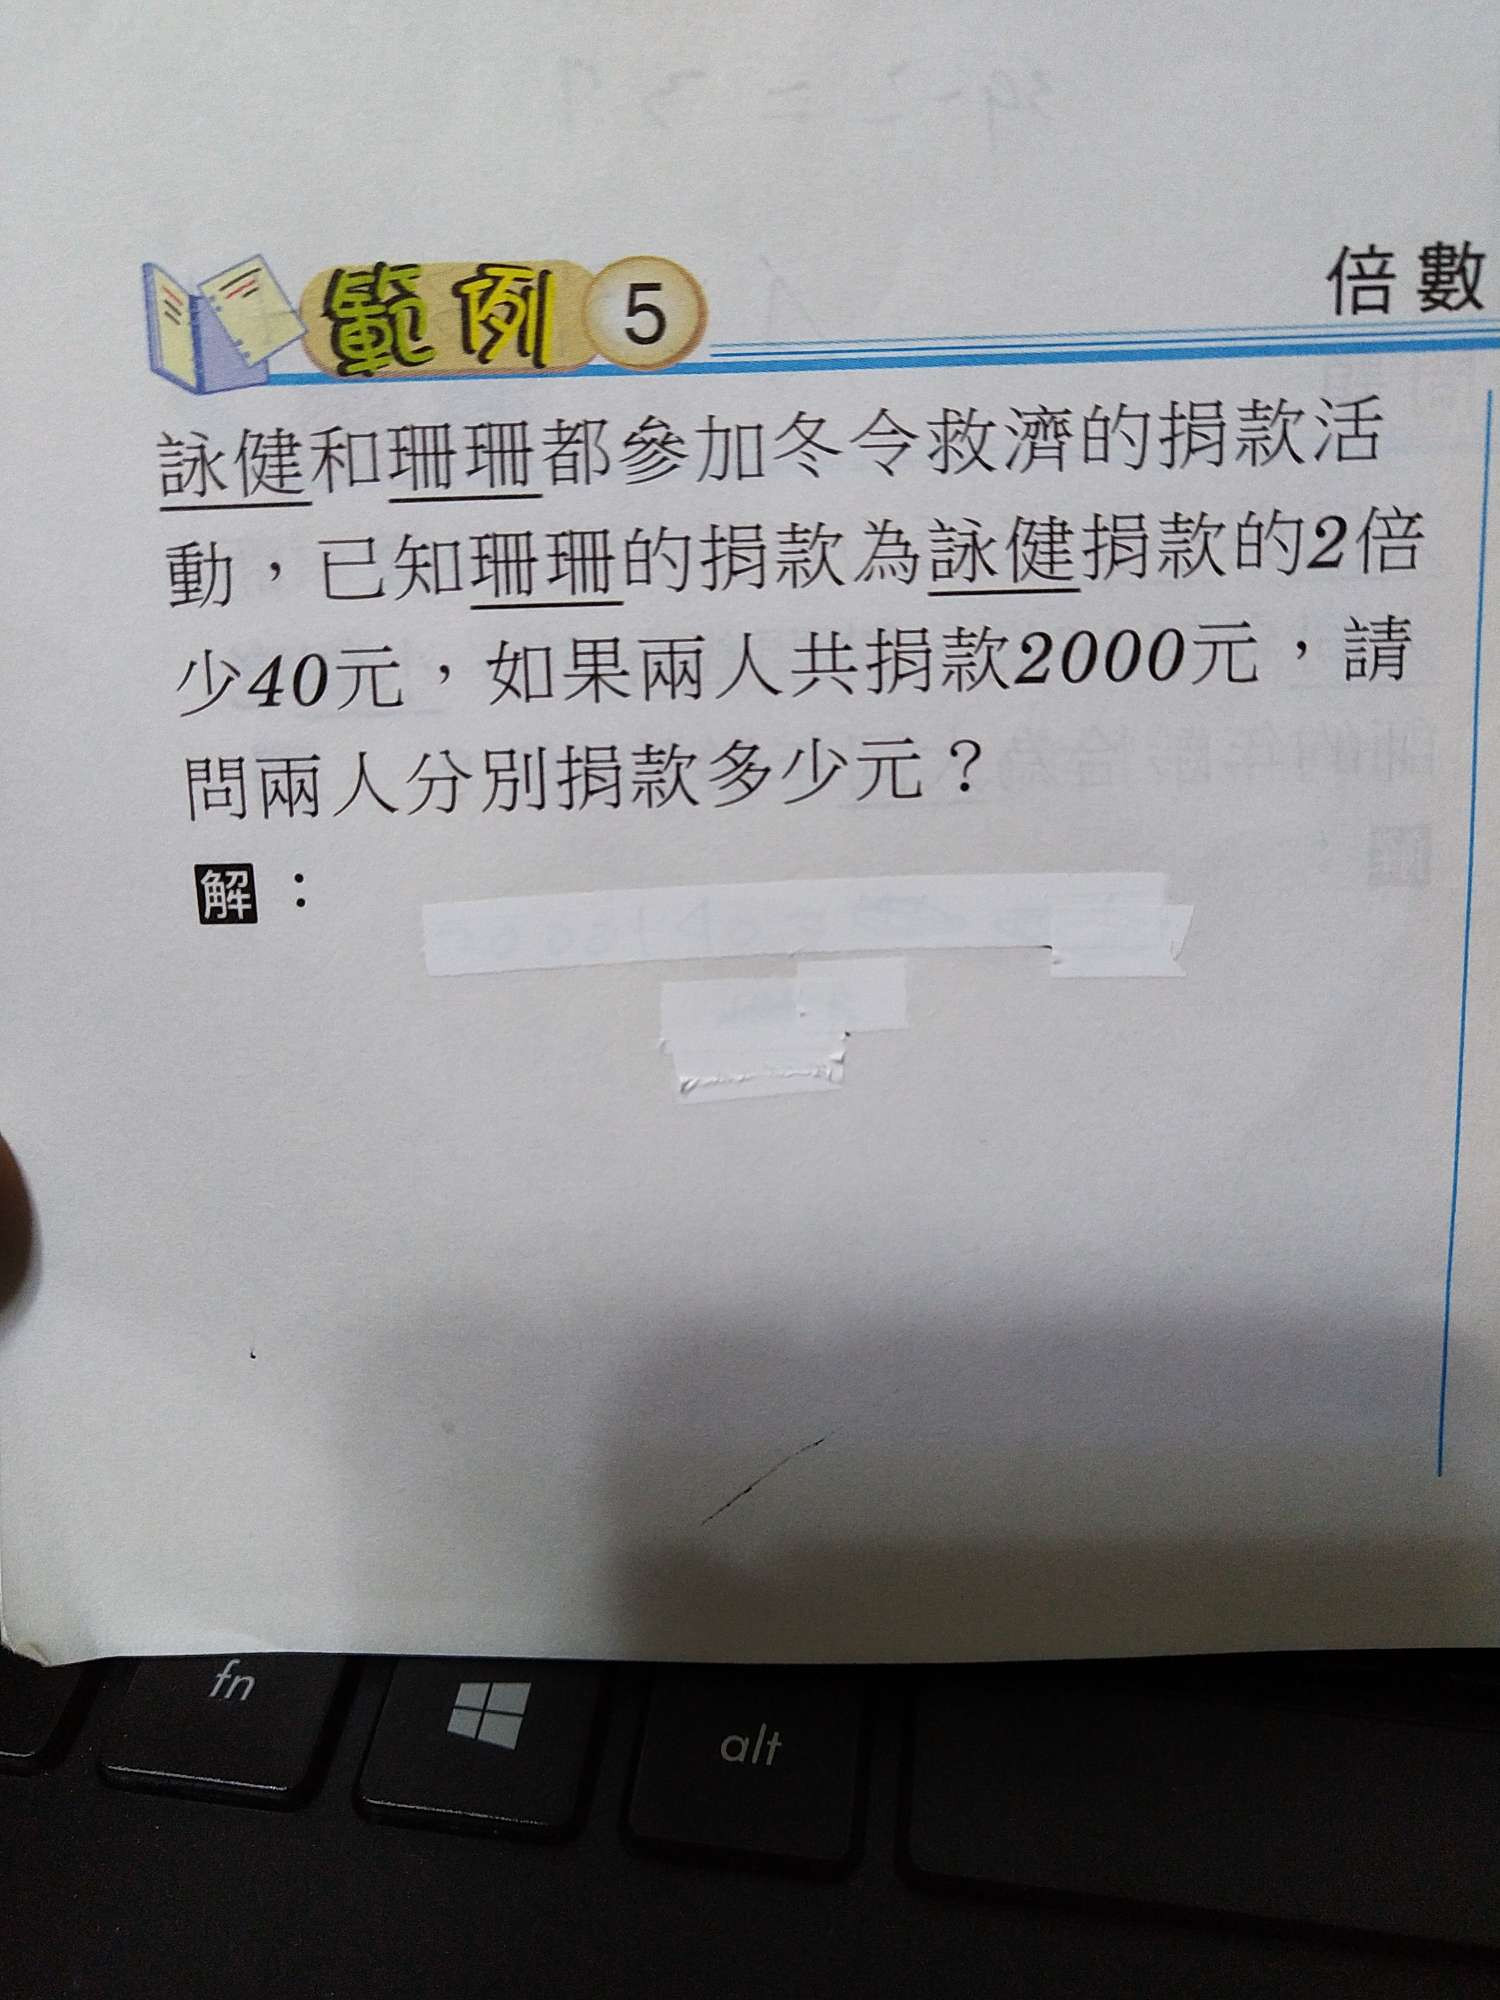 範例 5
倍數
詠健和珊珊都參加冬令救濟的捐款活
動，已知珊珊的捐款為詠健捐款的2倍
少40元，如果兩人共捐款2000元，請
問兩人分別捐款多少元？
解：
fn
alt